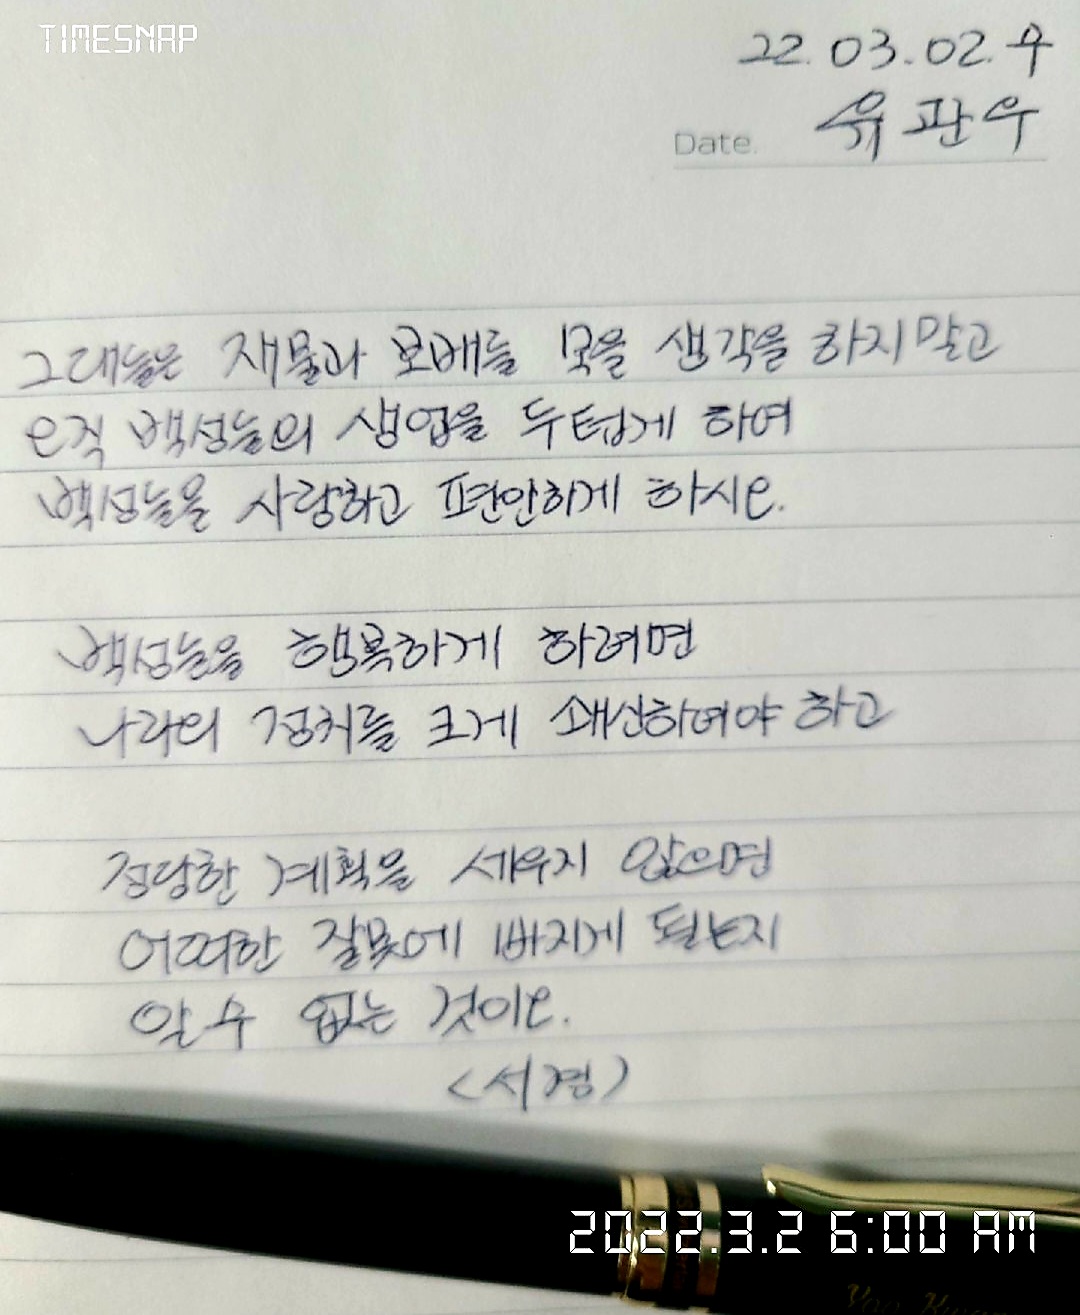 TIMESNAP
22.03.02.수
Date. 유관우
그대들은 재물과 보배들 모을 생각을 하지말고
오직 백성들의 생업을 두텁게 하여
백성들을 사랑하고 편안하게 하시오.
백성들을 행복하게 하려면
나라의 정치를 크게 쇄신하여야 하고
정당한 계획을 세우지 않으면
어떠한 잘못에 빠지게 될는지
알 수 없는 것이오.
<서경>
2022.3.2 6:00 AM